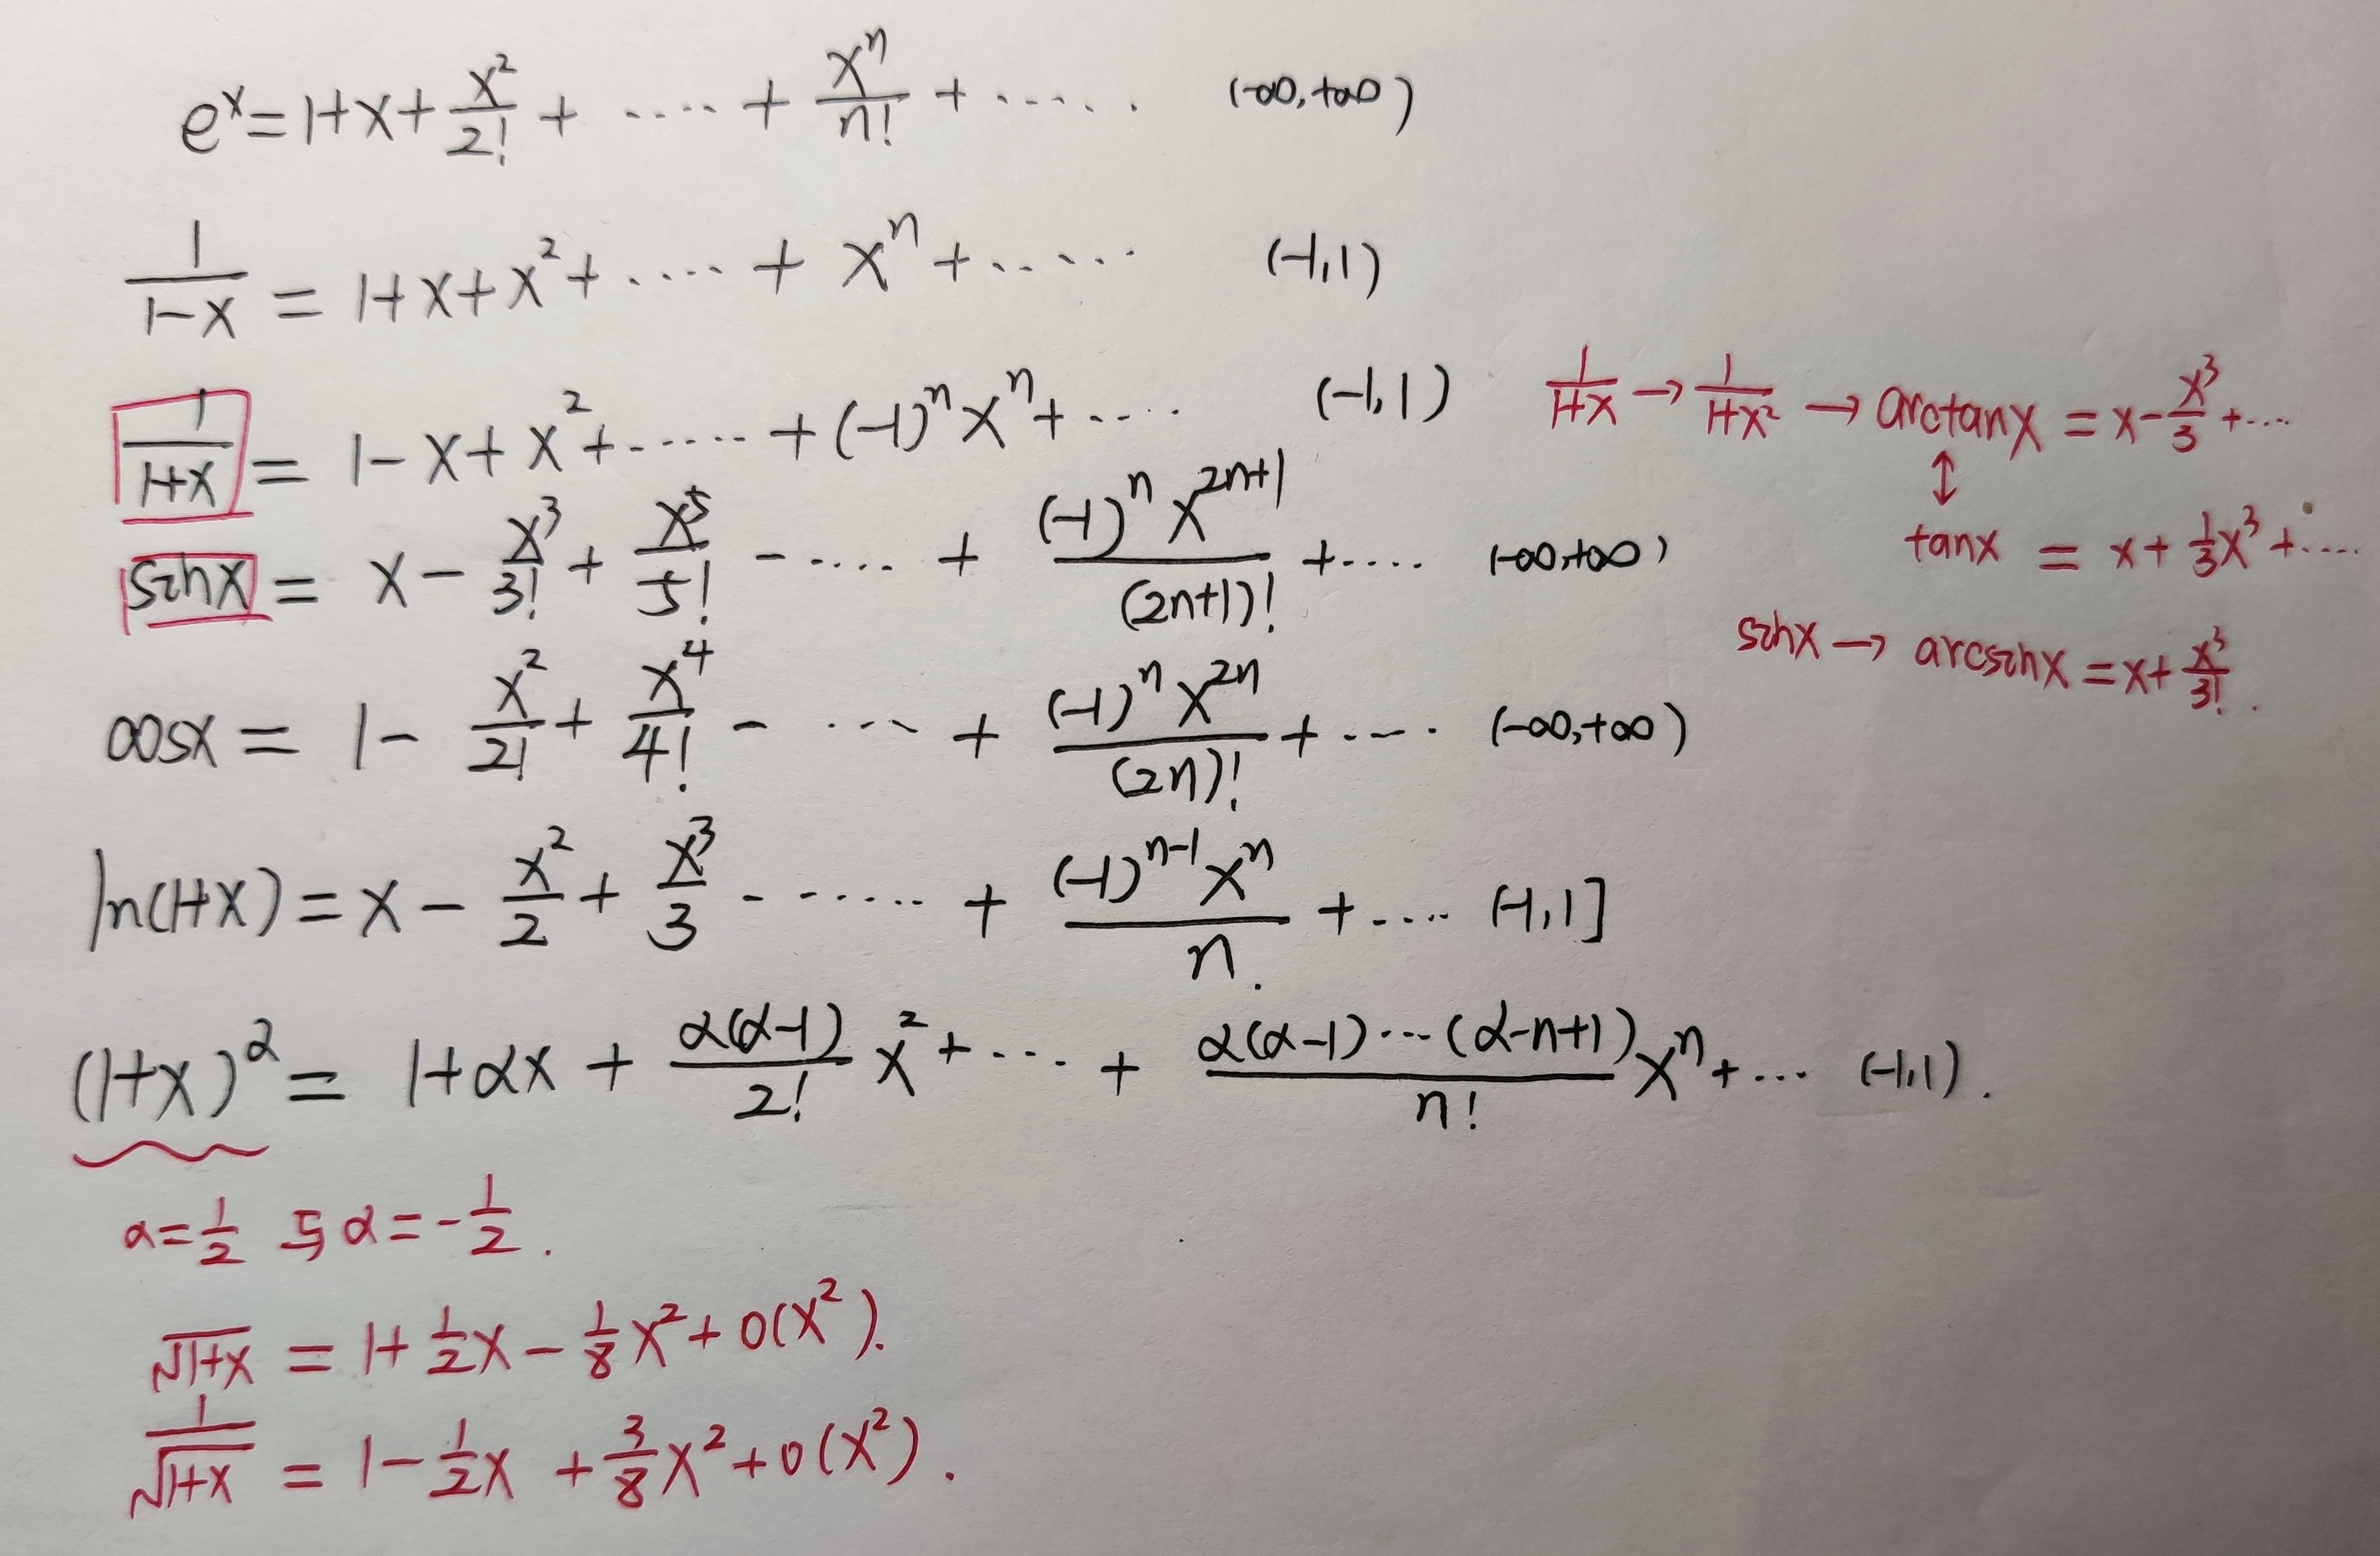 eˣ = 1+x+x²/2! + ‥‥ + xⁿ/n! + ‥‥‥ (-∞,+∞)
1/(1-x) = 1+x+x²+ ‥‥‥ + xⁿ + ‥‥‥ (-1,1)
1/(1+x) = 1-x+x²+ ‥‥‥ +(-1)ⁿxⁿ+ ‥‥ (-1,1)
1/(1+x) → 1/(1+x²) → arctanx = x-x³/3+…
↕
sinx = x - x³/3! + x⁵/5! - ‥‥ + (-1)ⁿx²ⁿ⁺¹/(2n+1)! +‥‥ (-∞,+∞)
tanx = x+1/3x³+‥‥
sinx → arcsinx = x+x³/3!.
cosx = 1- x²/2! + x⁴/4! - ‥‥ + (-1)ⁿx²ⁿ/(2n)! +‥‥ (-∞,+∞)
ln(1+x) = x - x²/2 + x³/3 - ‥‥‥ + (-1)ⁿ⁻¹xⁿ/n. +‥‥ (-1,1]
(1+x)ᵅ = 1+αx + α(α-1)/2! x²+ ‥‥ + α(α-1)…(α-n+1)/n! xⁿ+… (-1,1).
α=1/2 与α=-1/2.
√(1+x) = 1+1/2x-1/8x²+o(x²).
1/√(1+x) = 1-1/2x+3/8x²+o(x²).